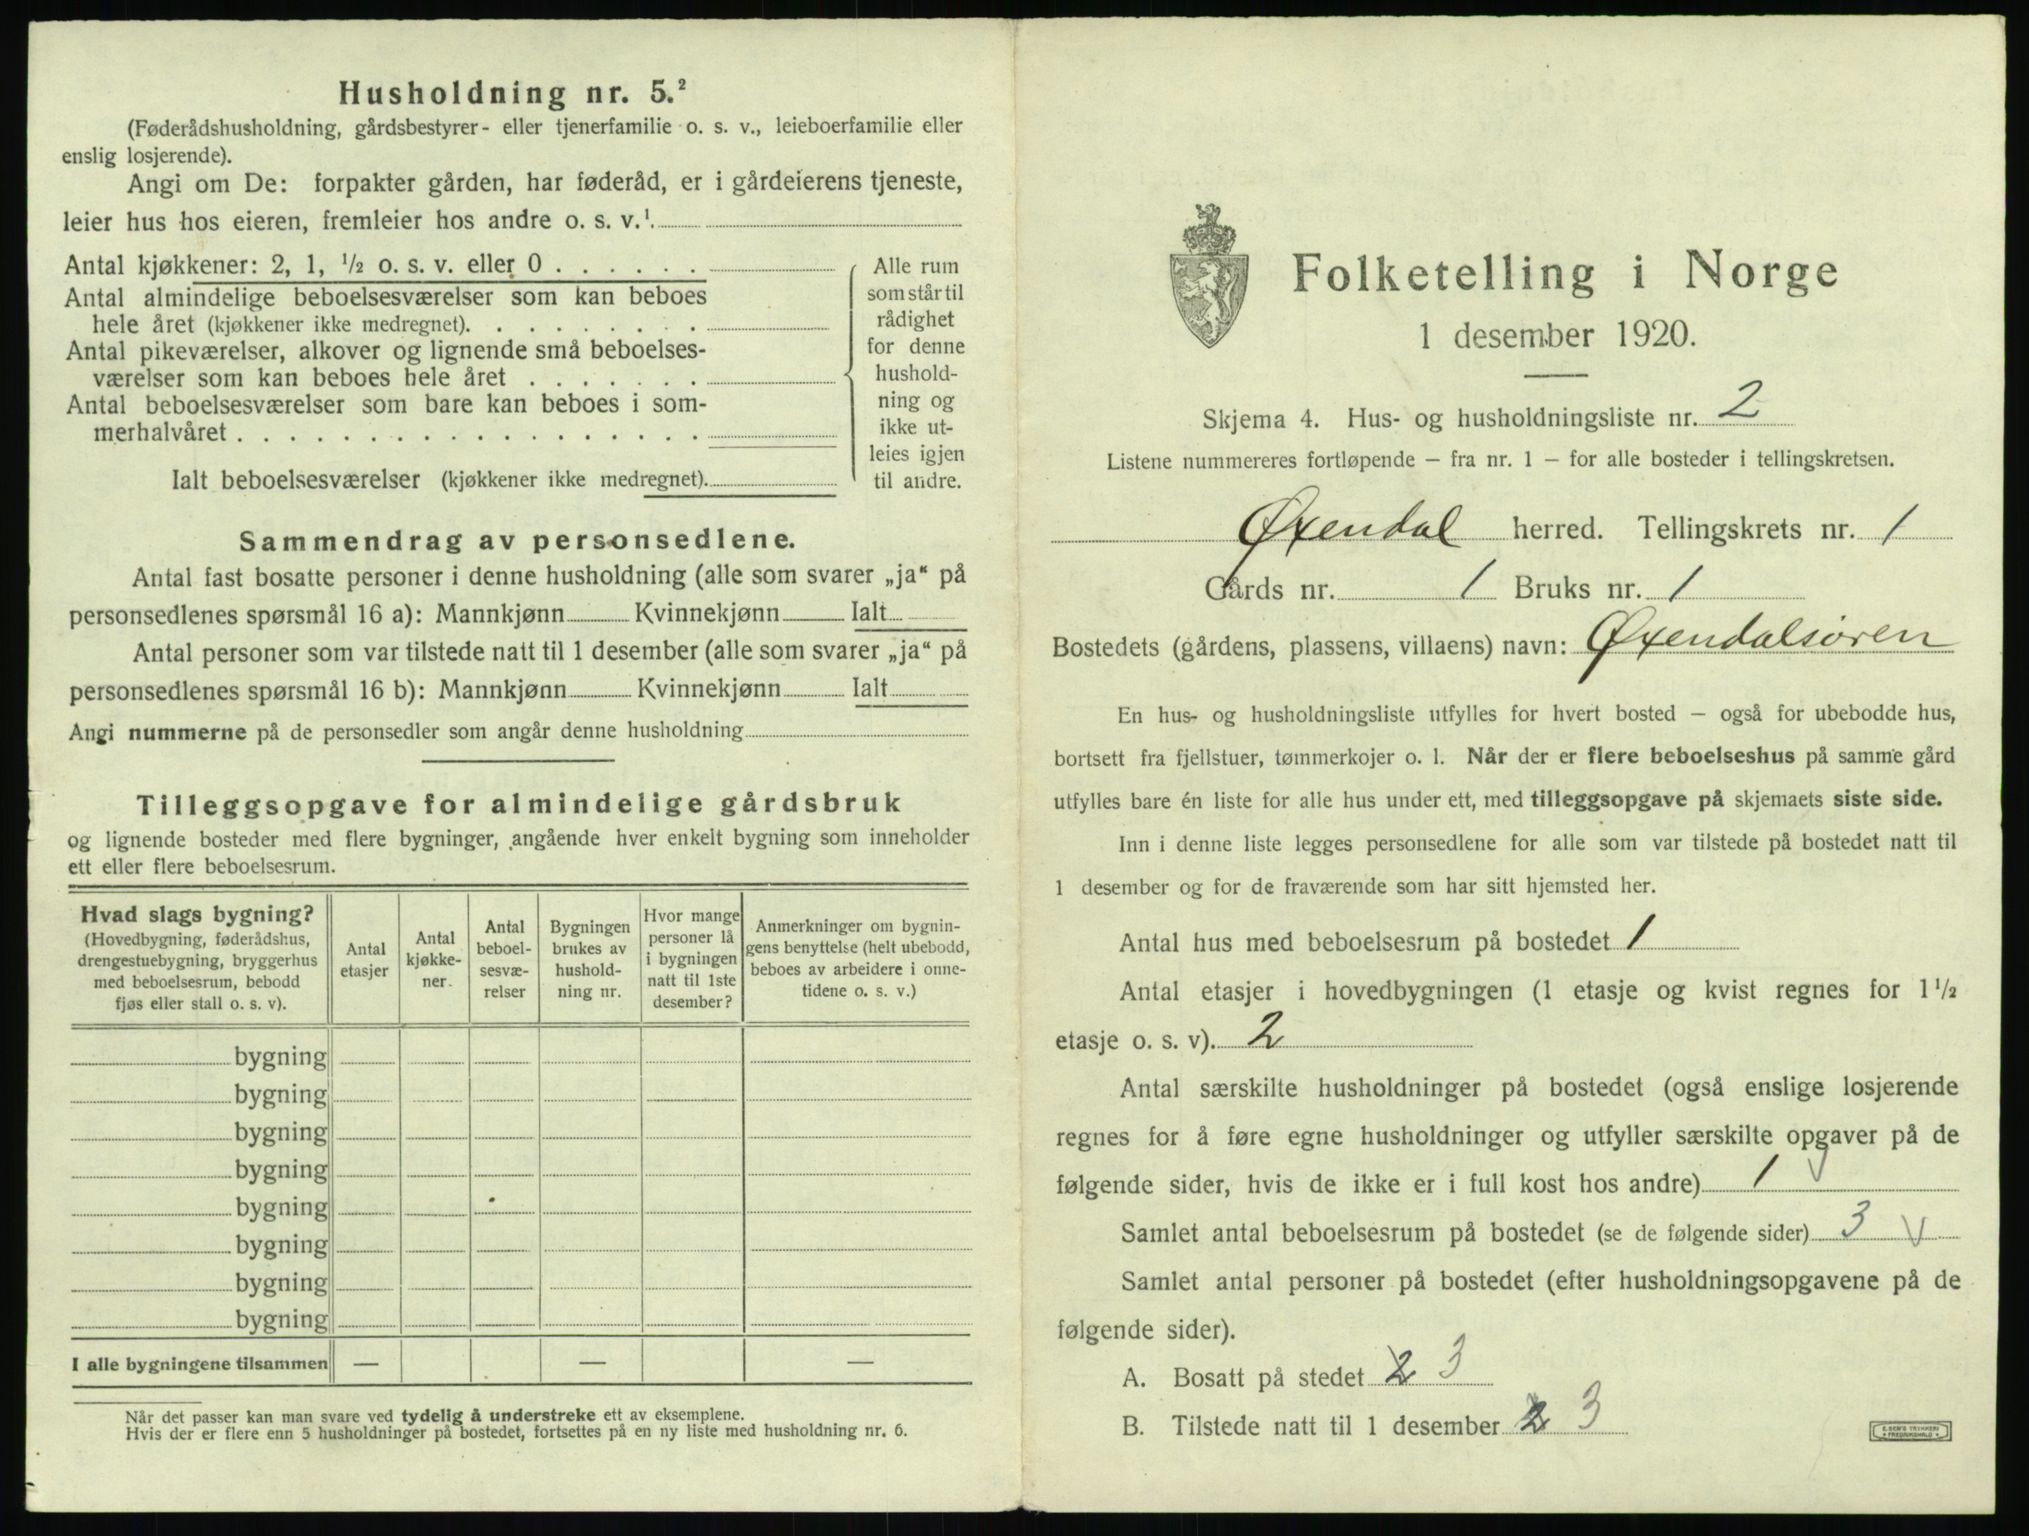 Husholdning nr. 5.²
(Føderådshusholdning, gårdsbestyrer- eller tjenerfamilie o. s. v., leieboerfamilie eller
enslig losjerende).
Angi om De: forpakter gården, har føderåd, er i gårdeierens tjeneste,
leier hus hos eieren, fremleier hos andre o. s. v.¹
Antal kjøkkener: 2, 1, ½ o. s. v. eller 0 . . . . . .
Antal almindelige beboelsesværelser som kan beboes
hele året (kjøkkener ikke medregnet). . . . . . . . .
Antal pikeværelser, alkover og lignende små beboelses-
værelser som kan beboes hele året . . . . . . .
Antal beboelsesværelser som bare kan beboes i som-
merhalvåret . . . . . . . . . . . . . . . . . .
Ialt beboelsesværelser (kjøkkener ikke medregnet).
Alle rum
som står til
rådighet
for denne
hushold-
ning og
ikke ut-
leies igjen
til andre.
Sammendrag av personsedlene.
Antal fast bosatte personer i denne husholdning (alle som svarer „ja“ på
personsedlenes spørsmål 16 a): Mannkjønn Kvinnekjønn Ialt
Antal personer som var tilstede natt til 1 desember (alle som svarer „ja“ på
personsedlenes spørsmål 16 b): Mannkjønn Kvinnekjønn Ialt
Angi nummerne på de personsedler som angår denne husholdning
Tilleggsopgave for almindelige gårdsbruk
og lignende bosteder med flere bygninger, angående hver enkelt bygning som inneholder
ett eller flere beboelsesrum.
Hvad slags bygning?
(Hovedbygning, føderådshus,
drengestuebygning, bryggerhus
med beboelsesrum, bebodd
fjøs eller stall o. s. v).
Antal
etasjer
Antal
kjøkke-
ner.
Antal
beboel-
sesvæ-
relser
Bygningen
brukes av
hushold-
ning nr.
Hvor mange
personer lå
i bygningen
natt til 1ste
desember?
Anmerkninger om bygnin-
gens benyttelse (helt ubebodd,
beboes av arbeidere i onne-
tidene o. s. v.)
bygning
bygning
bygning
bygning
bygning
bygning
bygning
bygning
I alle bygningene tilsammen — — —
Når det passer kan man svare ved tydelig å understreke ett av eksemplene.
Hvis der er flere enn 5 husholdninger på bostedet, fortsettes på en ny liste med husholdning nr. 6.
Folketelling i Norge
1 desember 1920.
Skjema 4. Hus- og husholdningsliste nr. 2
Listene nummereres fortløpende — fra nr. 1 — for alle bosteder i tellingskretsen.
Øxendal herred. Tellingskrets nr. 1
Gårds nr. 1 Bruks nr. 1
Bostedets (gårdens, plassens, villaens) navn: Øxendalsøren
En hus- og husholdningsliste utfylles for hvert bosted — også for ubebodde hus,
bortsett fra fjellstuer, tømmerkojer o. l. Når der er flere beboelseshus på samme gård
utfylles bare én liste for alle hus under ett, med tilleggsopgave på skjemaets siste side.
Inn i denne liste legges personsedlene for alle som var tilstede på bostedet natt til
1 desember og for de fraværende som har sitt hjemsted her.
Antal hus med beboelsesrum på bostedet 1
Antal etasjer i hovedbygningen (1 etasje og kvist regnes for 1½
etasje o. s. v). 2
Antal særskilte husholdninger på bostedet (også enslige losjerende
regnes for å føre egne husholdninger og utfyller særskilte opgaver på de
følgende sider, hvis de ikke er i full kost hos andre) 1
Samlet antal beboelsesrum på bostedet (se de følgende sider) 3
Samlet antal personer på bostedet (efter husholdningsopgavene på de
følgende sider).
A. Bosatt på stedet 2 3
B. Tilstede natt til 1 desember 2 3